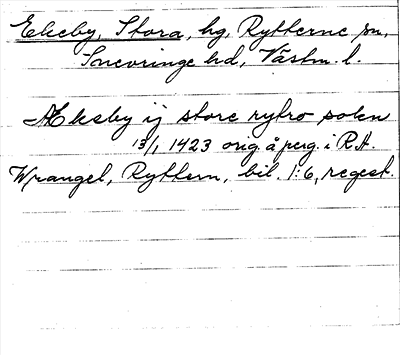 Ekeby, Stora, hg, Rytterne sn,
Snevringe hd, Västm. l.
Æksby ij store rytro soken
13/1 1423 orig. å perg. i R.A.
Wrangel, Ryttern, bil. 1:6, regest.